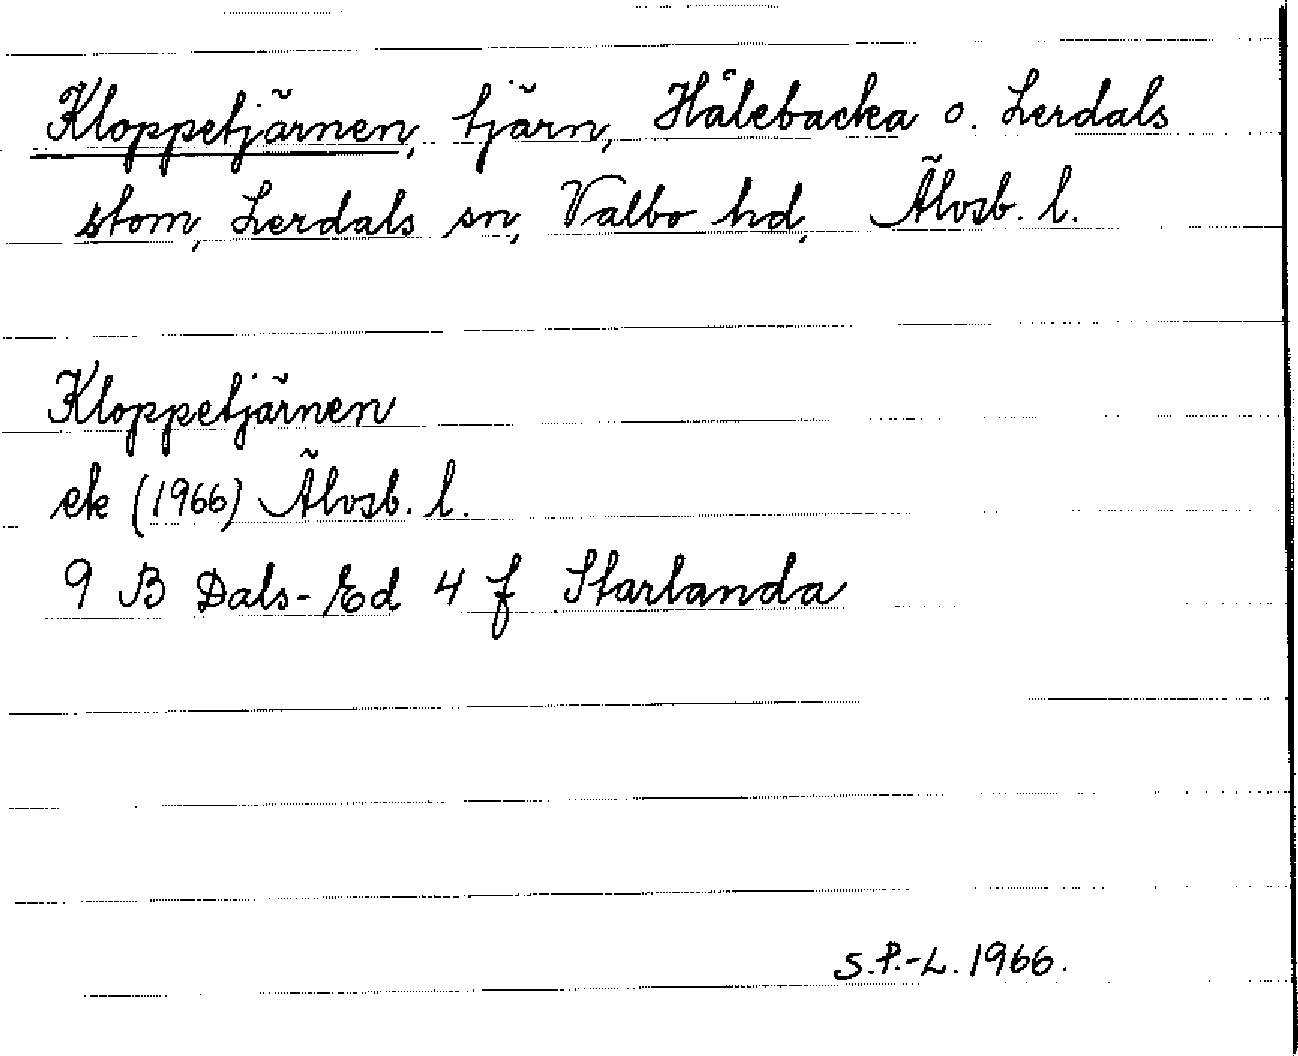 Kloppetjärnen, tjärn, Hålebacka o. Lerdals
stom, Lerdals sn, Valbo hd, Älvsb. l.
Kloppetjärnen
ek (1966) Älvsb. l.
9 B Dals-Ed 4 f Starlanda
S.P.-L. 1966.